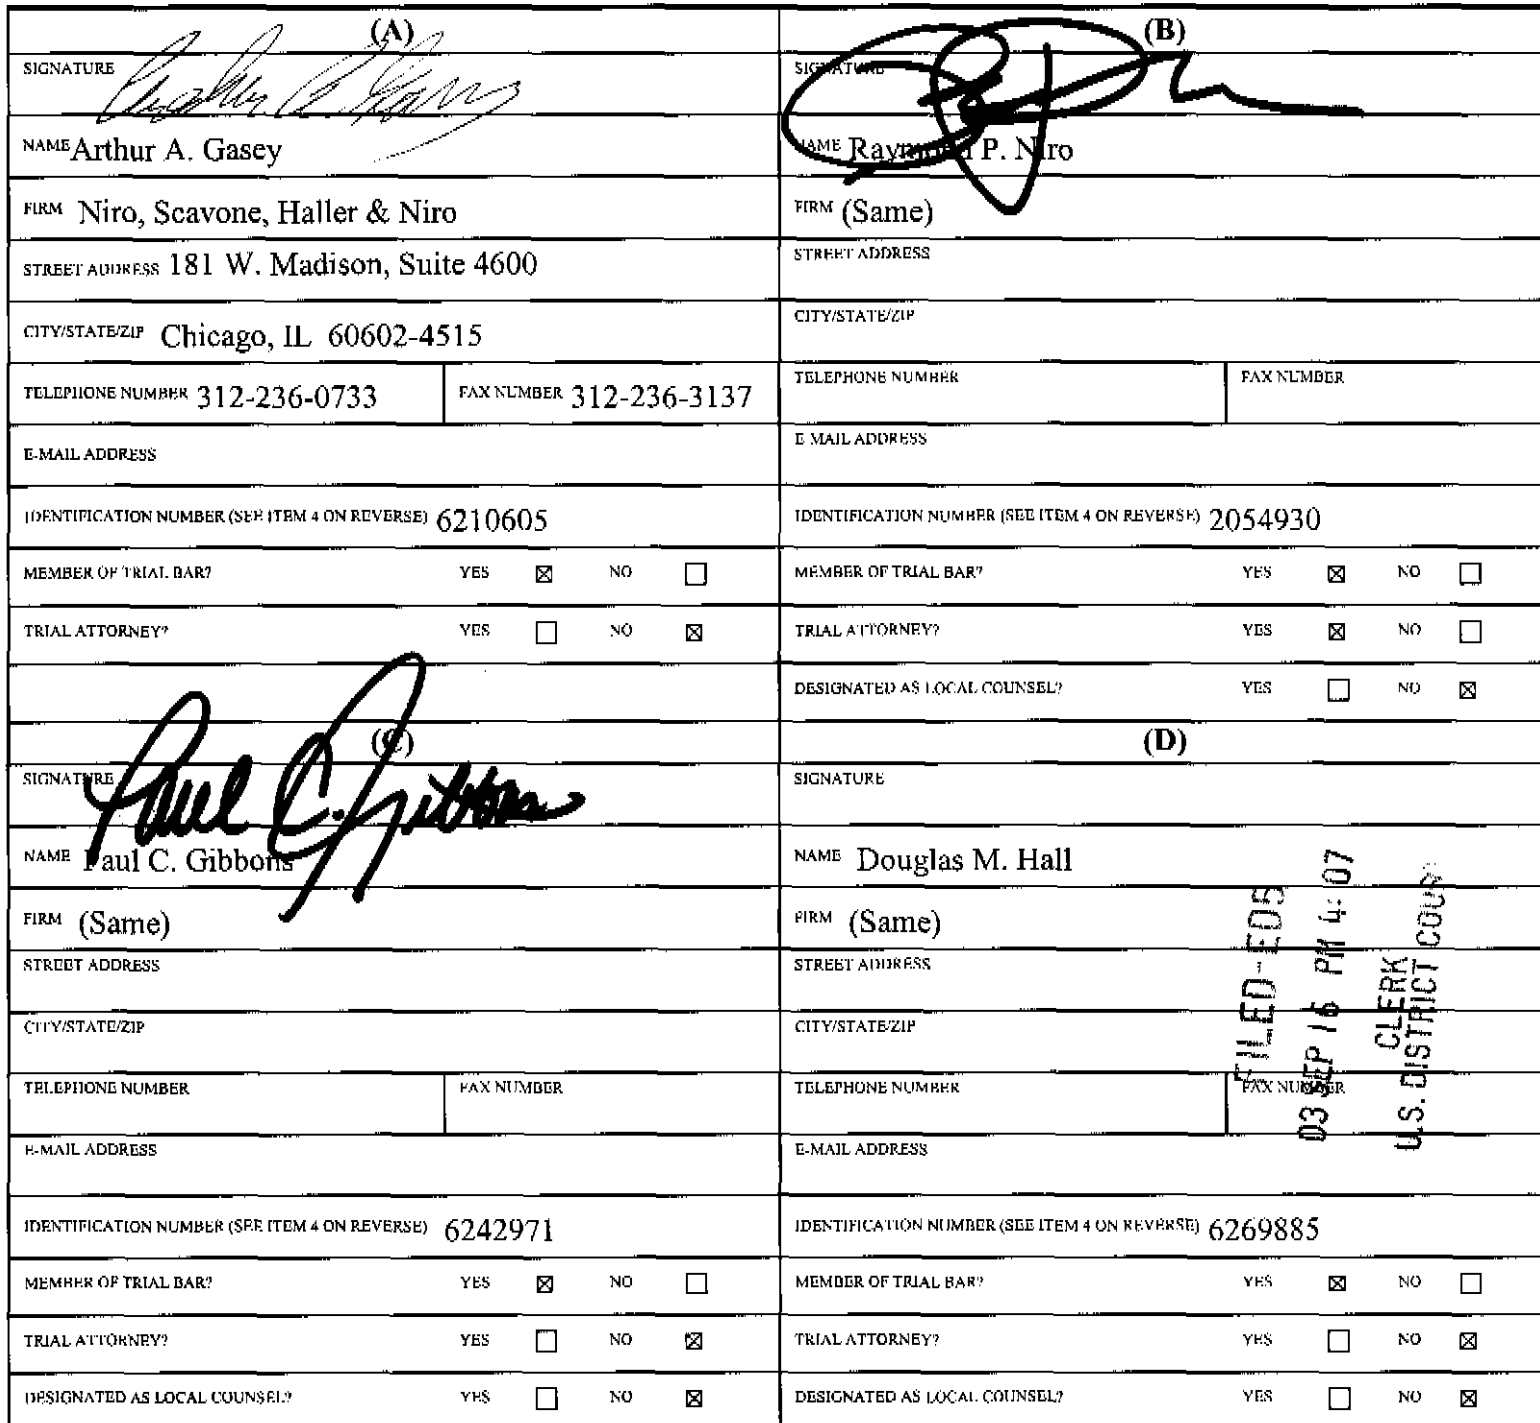 (A)
SIGNATURE
NAME Arthur A. Gasey
FIRM Niro, Scavone, Haller & Niro
STREET ADDRESS 181 W. Madison, Suite 4600
CITY/STATE/ZIP Chicago, IL 60602-4515
TELEPHONE NUMBER 312-236-0733 FAX NUMBER 312-236-3137
E-MAIL ADDRESS
IDENTIFICATION NUMBER (SEE ITEM 4 ON REVERSE) 6210605
MEMBER OF TRIAL BAR? YES ☒ NO ☐
TRIAL ATTORNEY? YES ☐ NO ☒
(B)
SIGNATURE
NAME Raymond P. Niro
FIRM (Same)
STREET ADDRESS
CITY/STATE/ZIP
TELEPHONE NUMBER FAX NUMBER
E-MAIL ADDRESS
IDENTIFICATION NUMBER (SEE ITEM 4 ON REVERSE) 2054930
MEMBER OF TRIAL BAR? YES ☒ NO ☐
TRIAL ATTORNEY? YES ☒ NO ☐
DESIGNATED AS LOCAL COUNSEL? YES ☐ NO ☒
(C)
SIGNATURE Paul C. Gibbons
NAME Paul C. Gibbons
FIRM (Same)
STREET ADDRESS
CITY/STATE/ZIP
TELEPHONE NUMBER FAX NUMBER
E-MAIL ADDRESS
IDENTIFICATION NUMBER (SEE ITEM 4 ON REVERSE) 6242971
MEMBER OF TRIAL BAR? YES ☒ NO ☐
TRIAL ATTORNEY? YES ☐ NO ☒
DESIGNATED AS LOCAL COUNSEL? YES ☐ NO ☒
(D)
SIGNATURE
NAME Douglas M. Hall
FIRM (Same)
STREET ADDRESS
CITY/STATE/ZIP
TELEPHONE NUMBER FAX NUMBER
E-MAIL ADDRESS
IDENTIFICATION NUMBER (SEE ITEM 4 ON REVERSE) 6269885
MEMBER OF TRIAL BAR? YES ☒ NO ☐
TRIAL ATTORNEY? YES ☐ NO ☒
DESIGNATED AS LOCAL COUNSEL? YES ☐ NO ☒
FILED-ED5
03 SEP 16 PM 4:07
CLERK
U.S. DISTRICT COURT